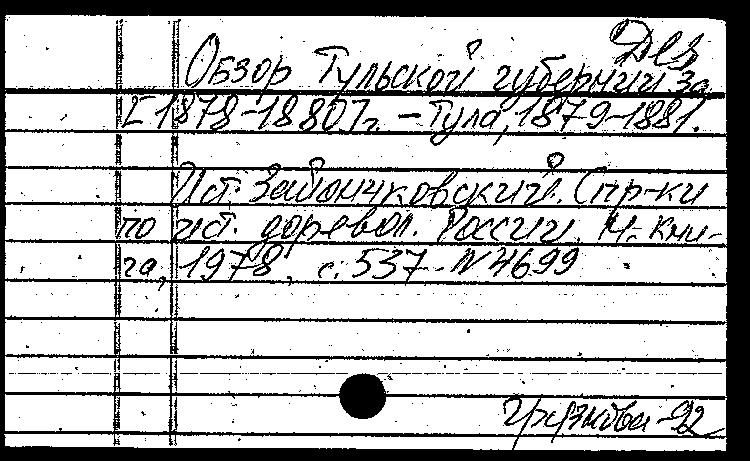 Дез
Обзор Тульской губернии за
[1878-1880] г. – Тула, 1879-1881.
Ист. Зайончковский. Спр-ки
по ист. доревол. России, М. Кни-
га, 1978, с. 537. N 4699